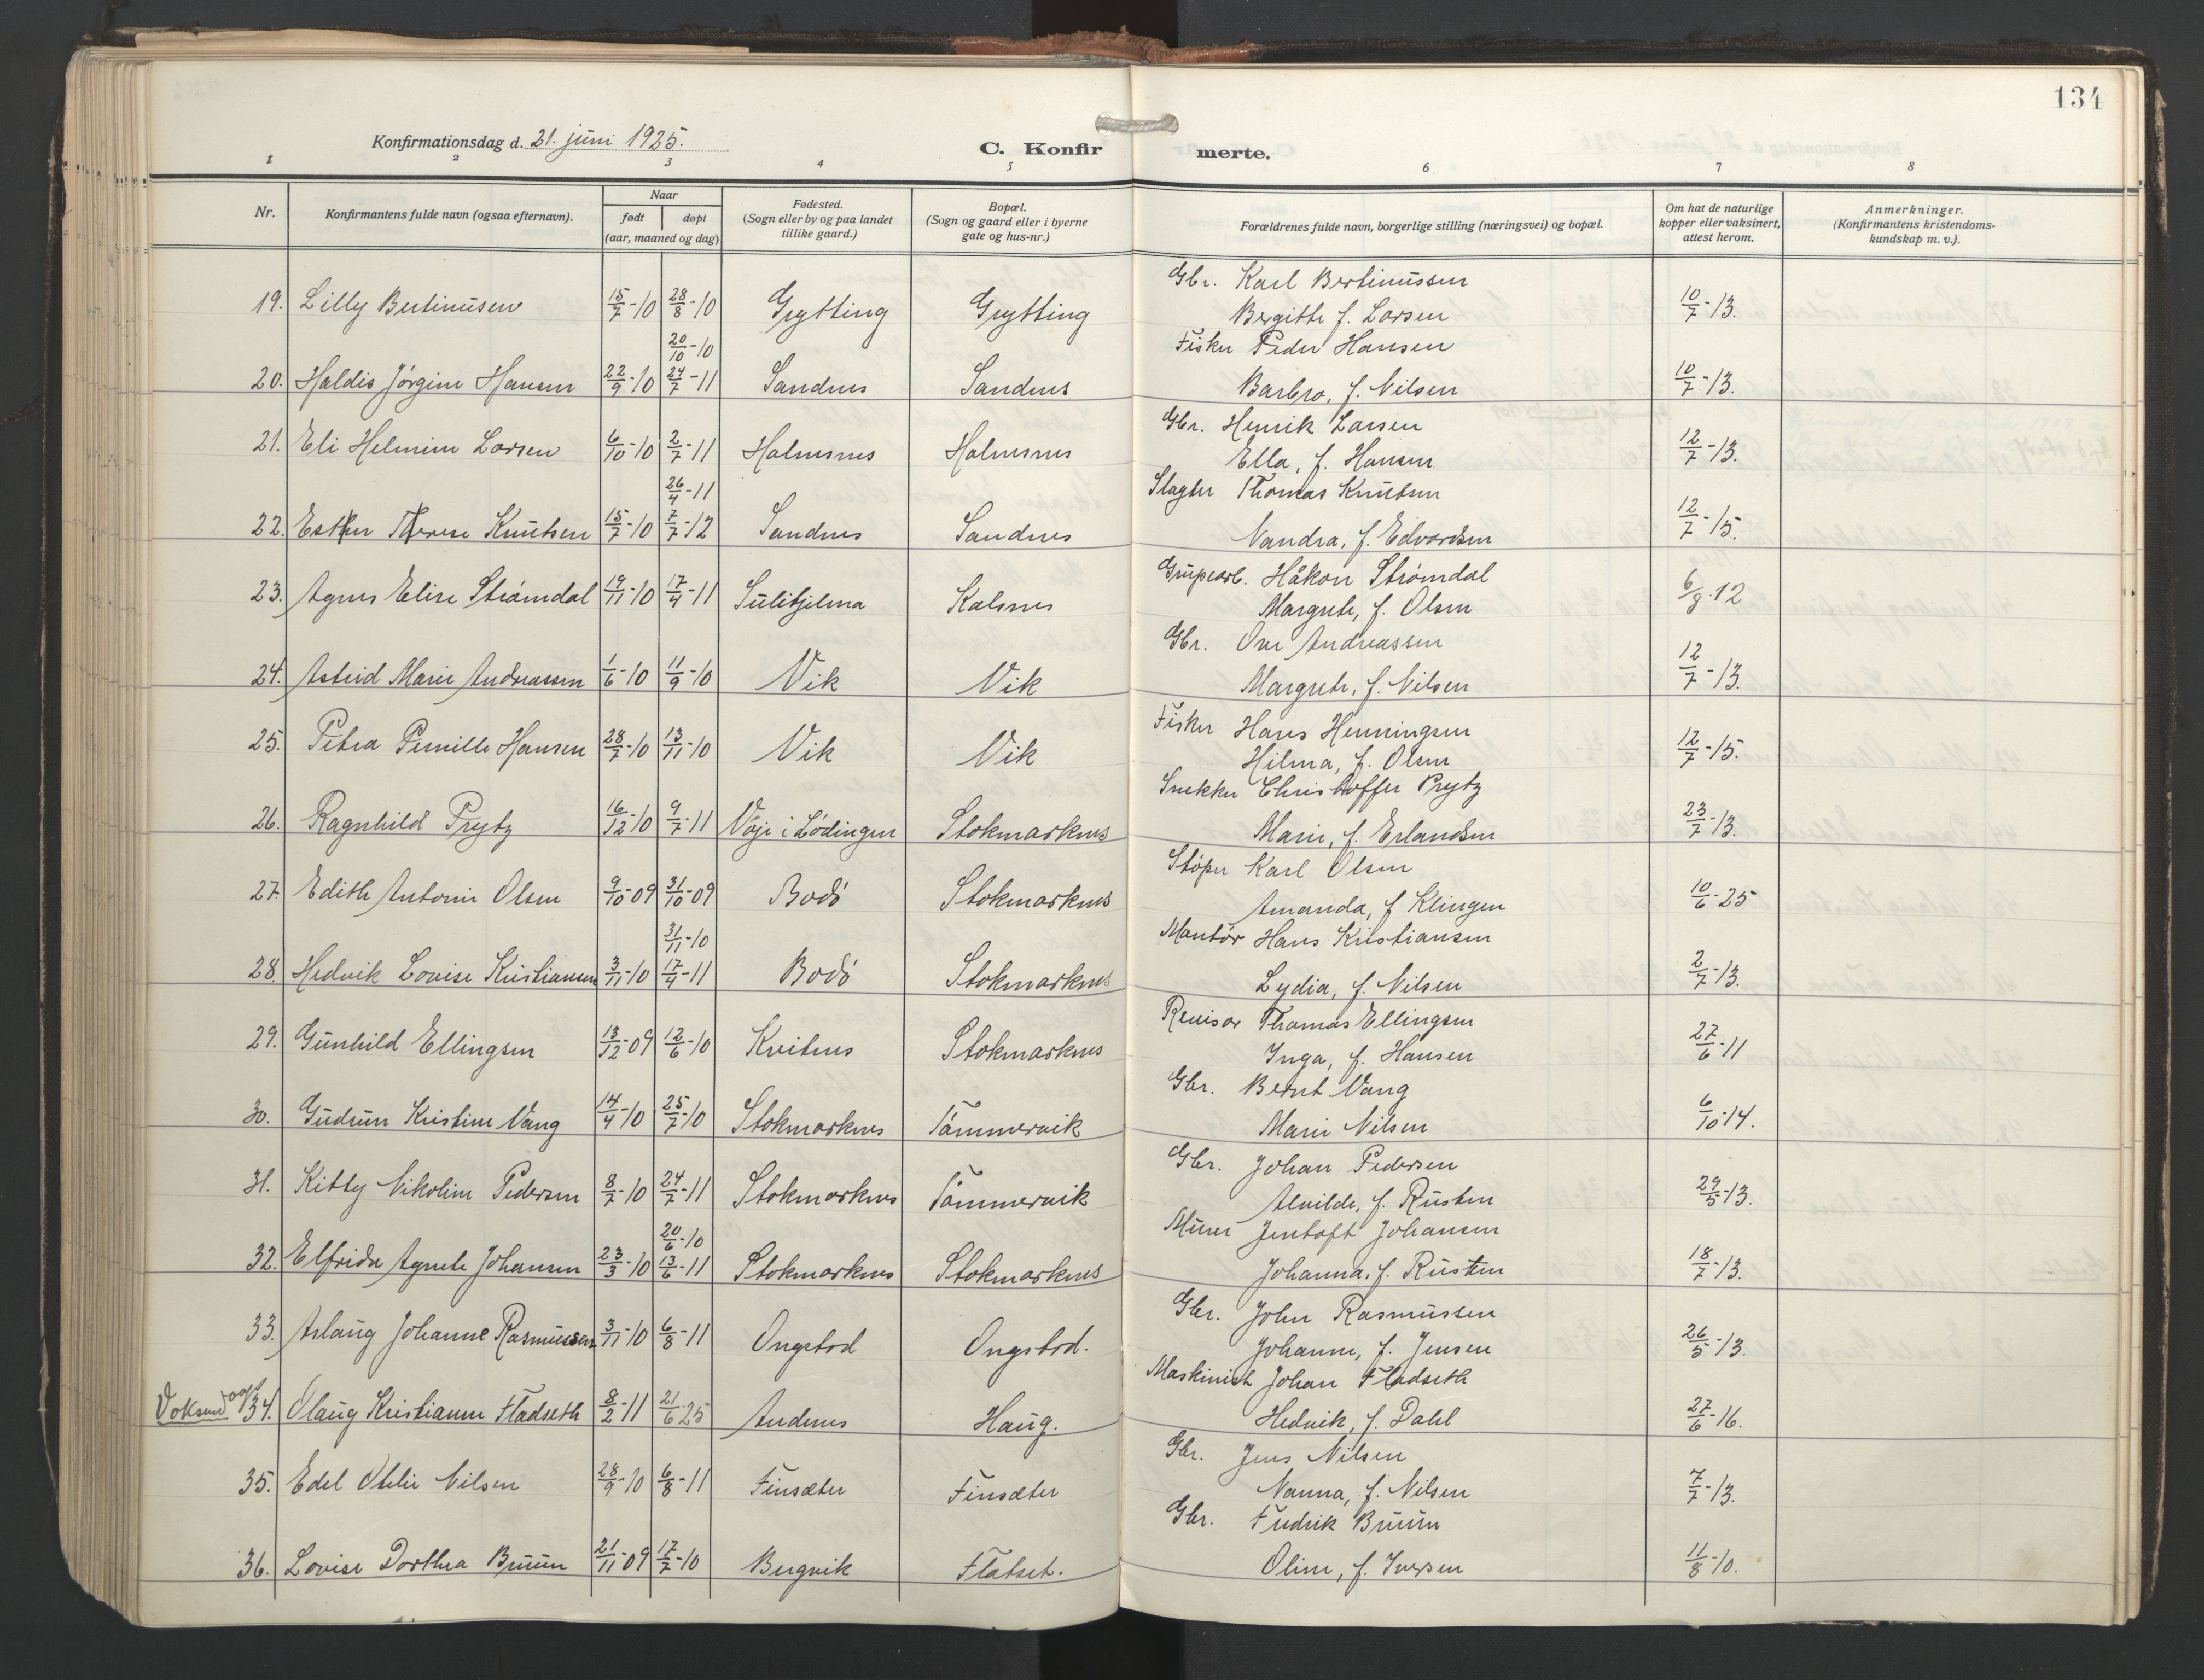 134
Konfirmationsdag d. 21. juni 1925.
C. Konfirmerte.
1 2 3 4 5 6 7 8
Nr.
Konfirmantens fulde navn (ogsaa efternavn).
Naar
født
døpt
(aar, maaned og dag)
Fødested.
(Sogn eller by og paa landet
tillike gaard.)
Bopæl.
(Sogn og gaard eller i byerne
gate og hus-nr.)
Forældrenes fulde navn, borgerlige stilling (næringsvei) og bopæl.
Om hat de naturlige
kopper eller vaksinert,
attest herom.
Anmerkninger.
(Konfirmantens kristendoms-
kundskap m. v.).
Gbr. Karl Bertinussen
19. Lilly Bertinusen 15/7-10 28/8-10 Grytting Grytting Bergitte f. Larsen 10/7-13.
20/10-10 Fisker Peder Hansen
20. Haldis Jørgine Hansen 22/9-10 24/7-11 Sandnes Sandnes Barbro, f. Nilsen 10/7-13.
Gbr. Henrik Larsen
21. Eli Helmine Larsen 6/10-10 2/7-11 Holmsnes Holmsnes Ella, f. Hansen 12/7-13.
26/4-11 Slagter Thomas Knutsen
22. Esther Therese Knutsen 15/7-10 7/7-12 Sandnes Sandnes Nandra, f. Edvardsen 12/7-15.
Grupearb. Håkon Strømdal
23. Agnes Elise Strømdal 19/11-10 17/4-11 Sulitjelma Kalsnes Margrete, f. Olsen 6/8-12
Gbr. Ove Andreassen
24. Astrid Marie Andreassen 1/6-10 11/9-10 Vik Vik Margrete, f. Nilsen 12/7-13.
Fisker Hans Henningsen
25. Petra Pernille Hansen 28/7-10 13/11-10 Vik Vik Hilma, f. Olsen 12/7-15.
Snekker Christoffer Prytz
26. Ragnhild Prytz 16/12-10 9/7-11 Vaje i Lødingen Stokmarknes Marie, f. Erlandsen 23/7-13.
Støper Karl Olsen
27. Edith Antonie Olsen 9/10-09 31/10-09 Bodø Stokmarknes Amanda, f. Klingen 10/6-25
31/11-10 Montør Hans Kristiansen
28. Hedvik Lovise Kristiansen 3/11-10 17/4-11 Bodø Stokmarknes Lydia, f. Nilsen 2/7-13.
Revisor Thomas Ellingsen
29. Gunhild Ellingsen 13/12-09 12/6-10 Kvitnes Stokmarknes Inga, f. Hansen 27/6-11
Gbr. Bernt Vang
30. Gudrun Kristine Vang 14/4-10 25/7-10 Stokmarknes Tømmervik Marie Nilsen 6/10-14.
Gbr. Johan Pedersen
31. Kitty Nikoline Pedersen 8/7-10 24/7-11 Stokmarknes Tømmervik Alvilde, f. Rusten 29/5-13.
20/6-10 Murer Jentoft Johansen
32. Elfrida Agnete Johansen 23/3-10 13/6-11 Stokmarknes Stokmarknes Johanna, f. Rusten 18/7-13.
Gbr. John Rasmussen
33. Aslaug Johanne Rasmussen 3/11-10 6/8-11 Ongstad Ongstad. Johanne, f. Jensen 26/5-13.
Maskinist Johan Fladseth
Voksend 34. Olaug Kristianne Fladseth 8/2-11 21/6-25 Andenes Haug. Hedvik, f. Dahl 27/6-16.
Gbr. Jens Nilsen
35. Edel Otelie Nilsen 28/9-10 6/8-11 Finsæter Finsæter Nanna, f. Nilsen 7/7-13.
Gbr. Fredrik Bruun
36. Lovise Dorthea Bruun 21/11-09 17/7-10 Bugvik Flatset. Oline, f. Iversen 11/8-10.